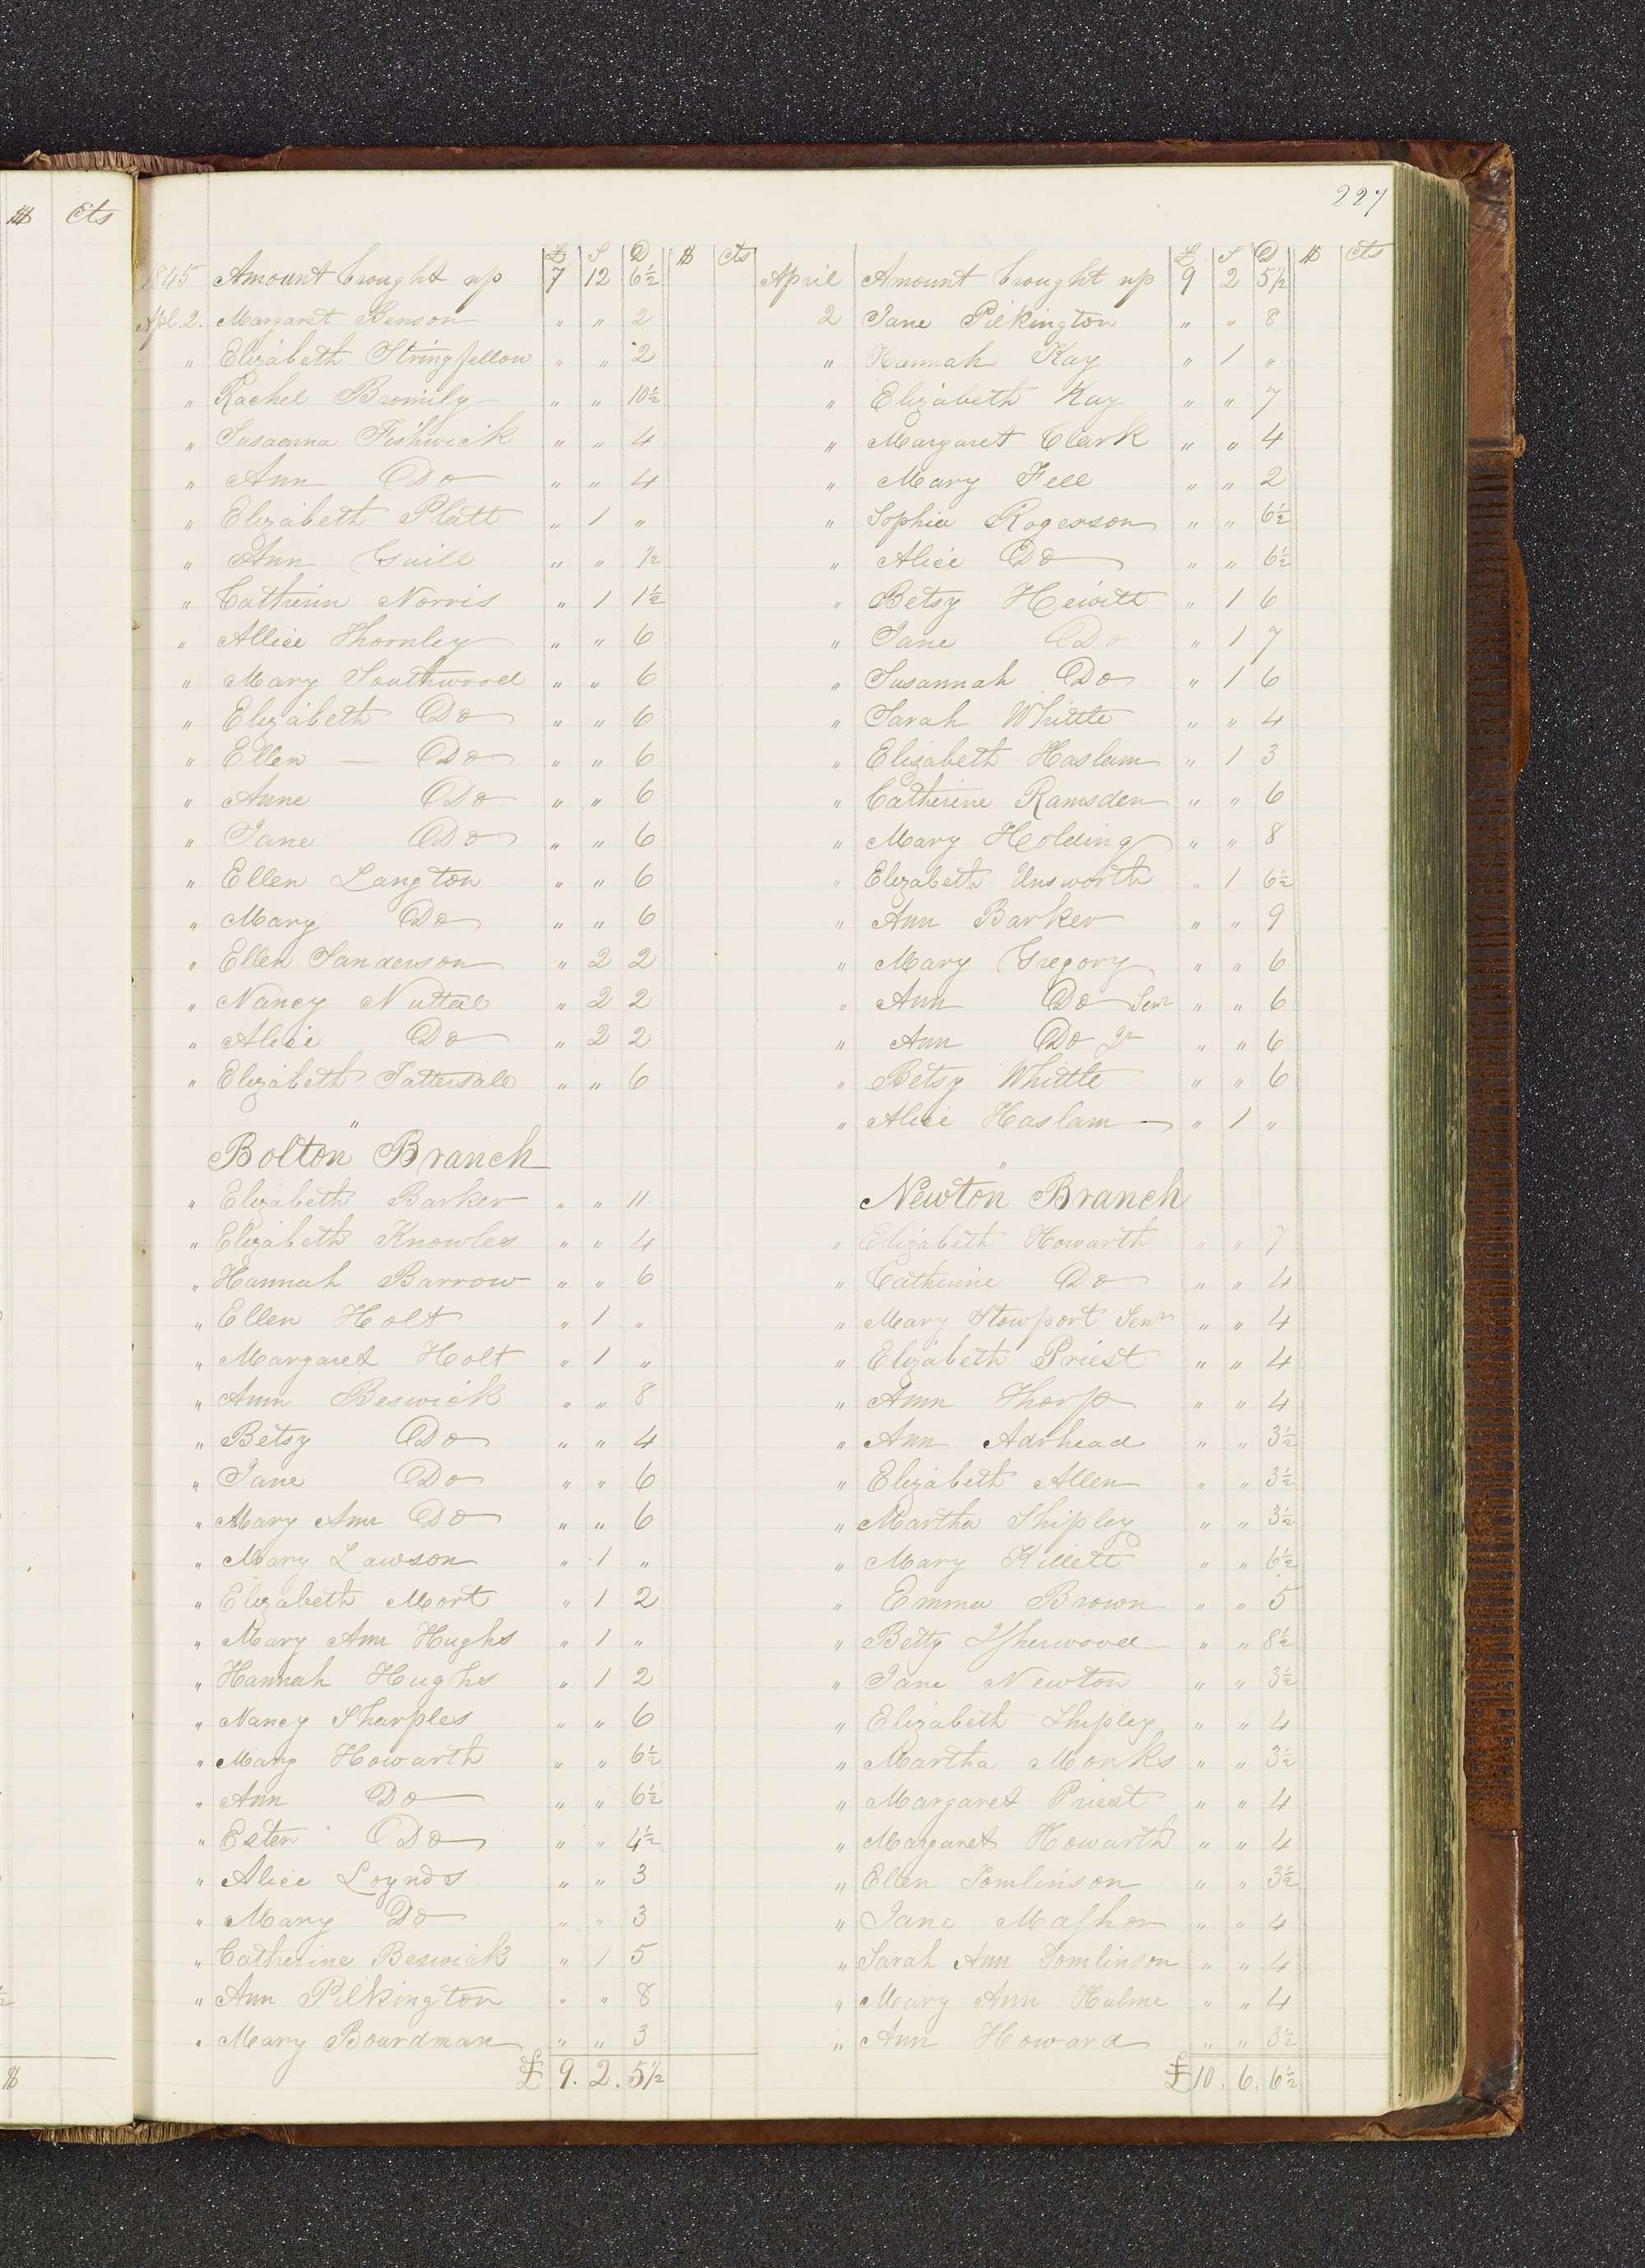 $ Cts
227
£ S D $ Cts
1845 Amount brought up 7 12 6½
Apl. 2. Margaret Benson " " 2
" Elizabeth Stringfellow " " 2
" Rachel Bromily " " 10½
" Susaanna Fishwick " " 4
" Ann Do " " 4
" Elizabeth Platt " 1 "
" Ann Guill " " ½
" Catherin Norris " 1 1½
" Allice Thornley " " 6
" Mary Southwood " " 6
" Elizabeth Do " " 6
" Ellen — Do " " 6
" Anne Do " " 6
" Jane Do " " 6
" Ellen Langton " " 6
" Mary Do " " 6
" Ellen Sanderson " 2 2
" Nancy Nuttal " 2 2
" Alice Do " 2 2
" Elizabeth Tattersale " " 6
"
Bolton Branch
" Elizabeth Barker " " 11
" Elizabeth Knowles " " 4
" Hannah Barrow " " 6
" Ellen Holt " 1 "
" Margaret Holt " 1 "
" Ann Beswick " " 8
" Betsy Do " " 4
" Jane Do " " 6
" Mary Ann Do " " 6
" Mary Lawson " 1 "
" Elizabeth Mort " 1 2
" Mary Ann Hughs " 1 "
" Hannah Hughs " 1 2
" Nancy Sharples " " 6
" Mary Howarth " " 6½
" Ann Do " " 6½
" Ester Do " " 4½
" Alice Loynds " " 3
" Mary Do " " 3
" Catherine Beswick " 1 5
" Ann Pilkington " " 8
" Mary Boardman " " 3
£ 9. 2. 5½
£ S D $ Cts
April Amount brought up 9 2 5½
2 Jane Pilkington " " 8
" Hannah Kay " 1 "
" Elizabeth Kay " " 7
" Margaret Clark " " 4
" Mary Fell " " 2
" Sophia Rogerson " " 6½
" Alice Do " " 6½
" Betsy Hewitt " 1 6
" Jane Do " 1 7
" Susannah Do " 1 6
" Sarah Whittle " " 4
" Elizabeth Haslam " 1 3
" Catherine Ramsden " " 6
" Mary Holding " " 8
" Elizabeth Unsworth " 1 6½
" Ann Barker " " 9
" Mary Gregory " " 6
" Ann Do Senr " " 6
" Ann Do Jr " " 6
" Betsy Whittle " " 6
" Alice Haslam " 1 "
"
Newton Branch
" Elizabeth Howarth " " 7
" Catherine Do " " 4
" Mary Stowport Senr " " 4
" Elizabeth Priest " " 4
" Ann Thorp " " 4
" Ann Adshead " " 3½
" Elizabeth Allen " " 3½
" Martha Shipley " " 3½
" Mary Killett " " 6½
" Emma Brown " " 5
" Betty Isherwood " " 8½
" Jane Newton " " 3½
" Elizabeth Shipley " " 4
" Martha Monks " " 3½
" Margaret Priest " " 4
" Margaret Howarth " " 4
" Ellen Tomlinson " " 3½
" Jane " " 4
" Sarah Ann Tomlinson " " 4
" Mary Ann Hulme " " 4
" Ann Howard " " 3½
£10. 6. 6½
$